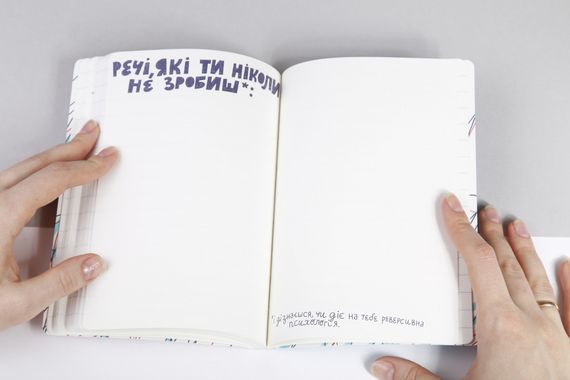 РЕЧІ, ЯКІ ТИ НІКОЛИ
НЕ ЗРОБИШ*:
ДІЗНАЄШСЯ, ЧИ ДІЄ НА ТЕБЕ РЕВЕРСИВНА
ПСИХОЛОГІЯ.